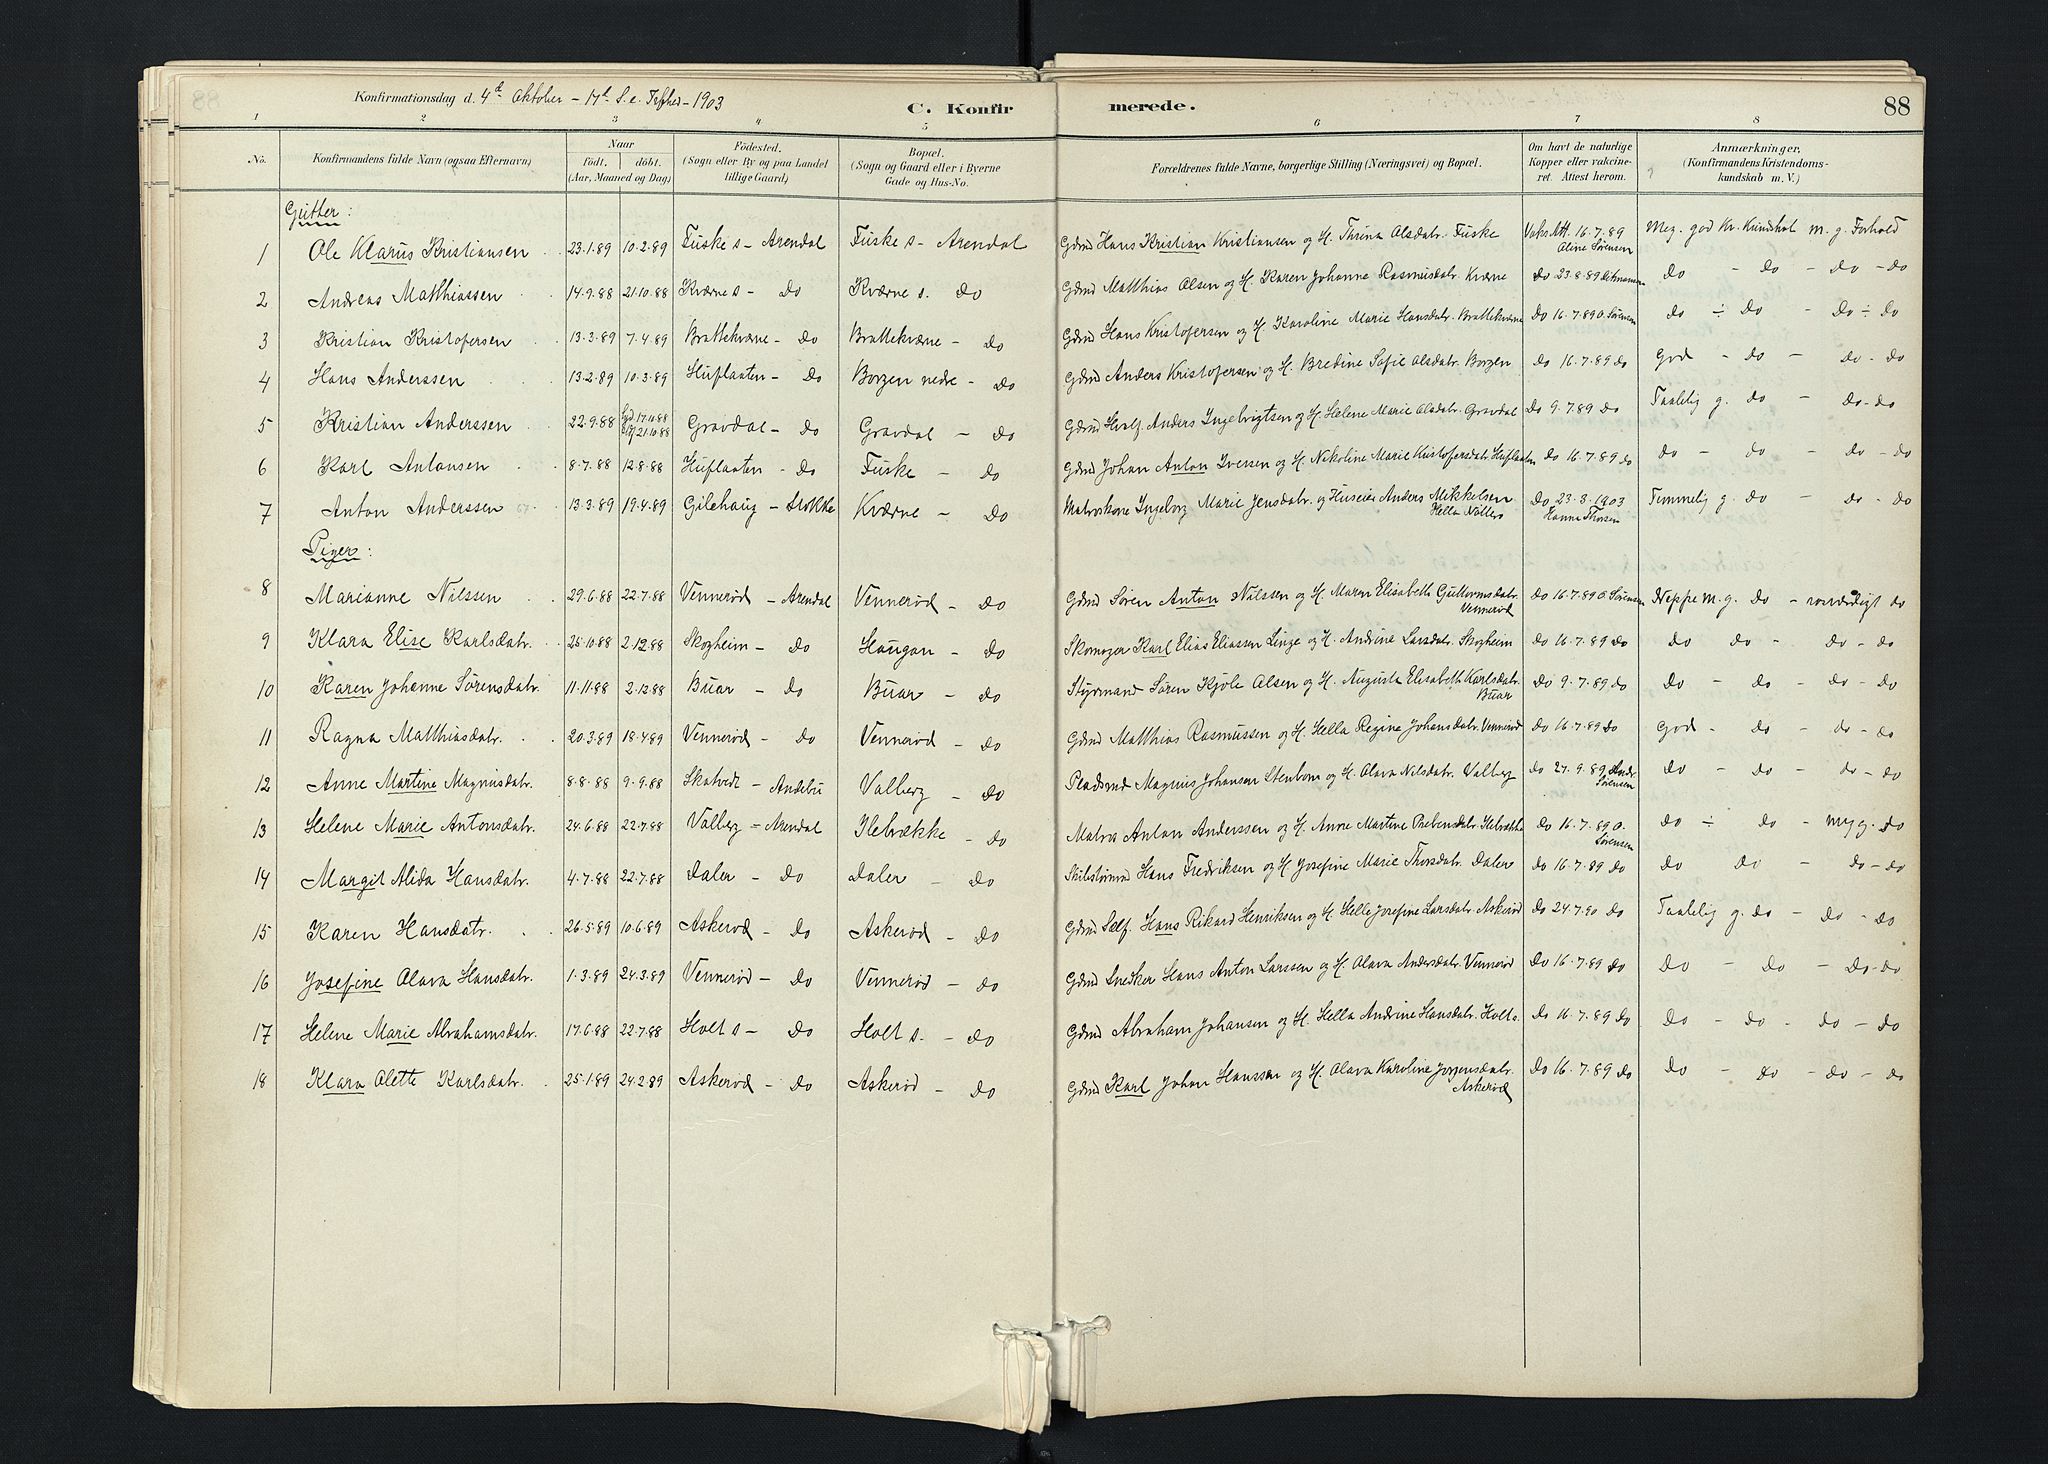 Konfirmationsdag d. 4d Oktober - 17d S. e. Trefhed - 1903
C. Konfirmerede.
88
1 2 3 4 5 6 7 8
No.
Konfirmandens fulde Navn (ogsaa Efternavn)
Naar
født. døbt.
(Aar, Maaned og Dag)
Fødested.
(Sogn eller By og paa Landet tillige Gaard)
Bopæl.
(Sogn og Gaard eller i Byerne Gade og Hus-No.
Forældrenes fulde Navne, borgerlige Stilling (Næringsvei) og Bopæl.
Om havt de naturlige Kopper eller vaccineret. Attest herom.
Anmærkninger,
(Konfirmandens Kristendomskundskab m. V.)
Gutter:
1 Ole Klarus Kristiansen 23.1.89 10.2.89 Fuske s - Arendal Fuske s - Arendal Gdmd Hans Kristian Kristiansen og H. Thrina Olsdatr. Fuske Vaks Att. 16.7.89 Oline Sørensen Meg. god Kr. Kundskab m. g. Forhold
2 Andreas Matthiassen 14.9.88 21.10.88 Kværne s - do Kværne s. do Gdmd Matthias Olsen og H. Karen Johanne Rasmusdatr. Kværne do 23.8.89 do - do - do - do
3 Kristian Kristofersen 13.3.89 7.4.89 Brattekværne - do Brattekværne - do Gdmd Hans Kristofersen og H. Karoline Marie Hansdatr. Brattekværne do 16.7.89 O. Sørensen do - do - do - do
4 Hans Anderssen 13.2.89 10.3.89 Huflaaten - do Borgen nedre - do Gdmd Anders Kristofersen og H. Bredine Sofie Olsdatr. Borgen do 16.7.89 do God - do - do - do
5 Kristian Anderssen 22.9.88 21.10.88 Gravdal - do Gravdal - do Gdmd Hvalf. Anders Ingebrigtsen og H. Helene Marie Olsdatr. Gravdal do 9.7.89 do Taalelig g. do - do - do
6 Karl Antonsen 8.7.88 12.8.88 Huflaaten - do Fuske - do Gdmd Johan Anton Iversen og H. Nikoline Marie Kristofersdatr Huflaaten do 16.7.89 do do - do - do - do
7 Anton Anderssen 13.3.89 19.4.89 Gilehaug - Stokke Kværne - do Matroskone Ingeborg Marie Jensdatr. og Huseier Anders Mikkelsen do 23.8.1903 Hanna Thorsen Temmelig g. do - do - do
Piger:
8 Marianne Nilssen 29.6.88 22.7.88 Vennerød - Arendal Vennerød - do Gdmd Søren Anton Nilssen og H. Maren Elisabeth Guttormsdatr. Vennerød do 16.7.89 O. Sørensen Neppe m. g. do - do
9 Klara Elise Karlsdatr. 25.10.88 2.12.88 Skogheim - do Haugan - do Skomager Karl Elias Eliassen Linge og H. Andrine Larsdatr. Skogheim do 16.7.89 do do do - do - do
10 Karen Johanne Sørensdatr. 11.11.88 2.12.88 Buar - do Buar - do Styrmand Søren Kjøle Olsen og H. Augusta Elisabeth Karlsdatr. Buar do 9.7.89 do do - do - do - do
11 Ragna Matthiasdatr. 20.3.89 18.4.89 Vennerød - do Vennerød - do Gdmd Matthias Rasmussen og H. Hella Regine Johansdatr. Vennerød do 16.7.89 do God - do - do - do
12 Anne Martine Magnusdatr. 8.8.88 9.9.88 Skatvedt - Andebu Valberg - do Pladsmd Magnus Johansen Stenbom og H. Olava Nilsdatr. Valberg do 27.9.89 Sørensen do - do - do - do
13 Helene Marie Antonsdatr. 24.6.88 22.7.88 Valberg - Arendal Ilebrække - do Matros Anton Anderssen og H. Anne Martine Prebensdatr. Ilebrække do 16.7.89 O. Sørensen do - do - do
14 Margit Alida Hansdatr. 4.7.88 22.7.88 Daler - do Daler - do Skibstømmd Hans Fredriksen og H. Josefine Marie Thorsdatr. Daler do 16.7.89 do do do - do - do
15 Karen Hansdatr. 26.5.89 10.6.89 Askerød - do Askerød - do Gdmd Self. Hans Rikard Henriksen og H. Helle Josefine Larsdatr. Askerød do 24.7.90 do Taalelig g. do - do - do
16 Josefine Olava Hansdatr. 1.3.89 24.3.89 Vennerød - do Vennerød - do Gdmd Snedker Hans Anton Larssen og H. Olava Andersdatr. Vennerød do 16.7.89 do do - do - do - do
17 Helene Marie Abrahamsdatr. 17.6.88 22.7.88 Holt s - do Holt s. - do Gdmd Abraham Johansen og H. Hella Andrine Hansdatr. Holt s. do 16.7.89 do do - do - do - do
18 Klara Olette Karlsdatr. 25.1.89 24.2.89 Askerød - do Askerød - do Gdmd Karl Johan Hanssen og H. Olava Karoline Jørgensdatr. Askerød do 16.7.89 do do - do - do - do